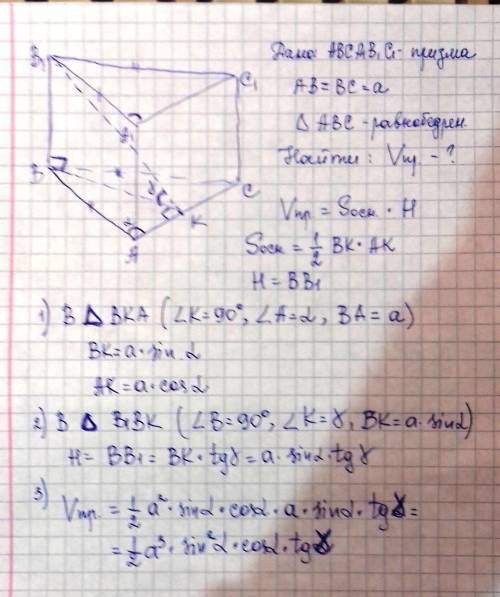 Дано: ABCA₁B₁C₁ - призма
AB = BC = a
Δ ABC - равнобедрен.
Найти: Vпр. - ?
Vпр = Sосн · H
Sосн = 1/2 BK · AK
H = BB₁
B₁
C₁
A₁
B
C
K
A
α
γ
1) В Δ BKA (∠K = 90°, ∠A = α, BA = a)
BK = a · sin α
AK = a · cos α
2) В Δ B₁BK (∠B = 90°, ∠K = γ, BK = a · sin α)
H = BB₁ = BK · tg γ = a · sin α · tg γ
3) Vпр. = 1/2 a² · sin α · cos α · a · sin α · tg γ =
= 1/2 a³ · sin² α · cos α · tg γ